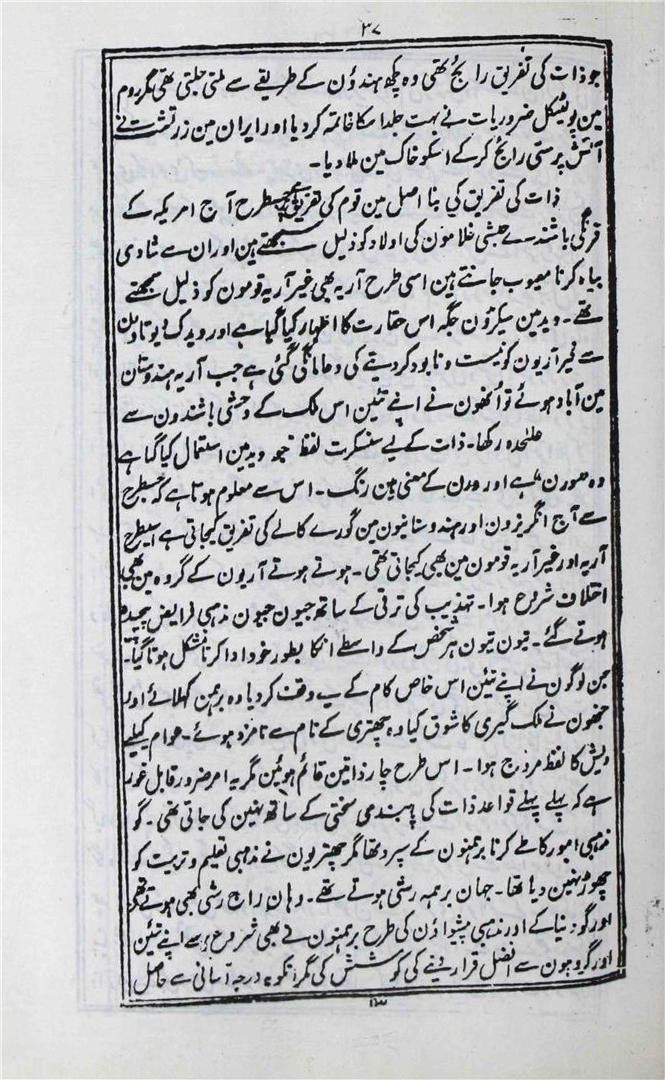 ۳۷
جو ذات کی تفریق رائج تھی وہ کچھ ہندوُن کے طریقے سے ملتی جلتی تھی مگر روم
مین پولٹیکل ضروریات نے بہت جلد اسکا خاتمہ کردیا اور ایران مین زرتشت نے
آتش پرستی رائج کرکے اسکو خاک مین ملادیا۔
ذات کی تفریق کی بنا اصل مین قوم کی تفریق ہے جسطرح آج امریکہ کے
فرنگی باشندے حبشی غلامون کی اولاد کو ذلیل سمجھتے ہین اور ان سے شادی
بیاہ کرنا معیوب جانتے ہین اسی طرح آریہ بھی غیر آریہ قومون کو ذلیل سمجھتے
تھے۔ وید مین سیکڑون جگہ اس حقارت کا اظہار کیا گیا ہے اور ویدک دیوتاؤن
سے غیر آریون کو نیست و نابود کردینے کی دعا مانگی گئی ہے جب آریہ ہندوستان
مین آباد ہوئے تو اُنھون نے اپنے تئین اس ملک کے وحشی باشندون سے
علیٰحدہ رکھا۔ ذات کے لیے سنسکرت لفظ جو وید مین استعمال کیا گیا ہے
وہ ورن ہے اور ورن کے معنی ہین رنگ۔ اس سے معلوم ہوتا ہے کہ جسطرح
سے آج انگریزون اور ہندوستانیون مین گورے کالے کی تفریق کیجاتی ہے اسیطرح
آریہ اور غیر آریہ قومون مین بھی کیجاتی تھی۔ ہوتے ہوتے آریون کے گروہ مین بھی
اختلاف شروع ہوا۔ تہذیب کی ترقی کے ساتھ جیون جیون مذہبی فرایض پیچیدہ
ہوتے گئے۔ تیون تیون ہر شخص کے واسطے انکا بطور خود ادا کرنا مشکل ہوتا گیا۔
جن لوگون نے اپنے تئین اس خاص کام کے لیے وقف کردیا وہ برہمن کہلائے اور
جنھون نے ملک گیری کا شوق کیا وہ چھتری کے نام سے نامزد ہوئے۔ عوام کیلیے
ویش کا لفظ مروج ہوا۔ اس طرح چار ذاتین قائم ہوئین مگر یہ امر ضرور قابل غور
ہے کہ پہلے پہلے قواعد ذات کی پابندی سختی کے ساتھ نہین کی جاتی تھی۔ گو
مذہبی امور کا طے کرنا برہمنون کے سپرد تھا مگر چھتریون نے مذہبی تعلیم و تربیت کو
چھوڑ نہین دیا تھا۔ جہان برہمہ رشی ہوتے تھے۔ وہان راج رشی بھی ہوتے تھے
اور گو دنیا کے اور مذہبی پیشواؤن کی طرح برہمنون نے بھی شروع سے اپنے تئین
اور گروہون سے افضل قرار دینے کی کوشش کی مگر انکو یہ درجہ آسانی سے حاصل